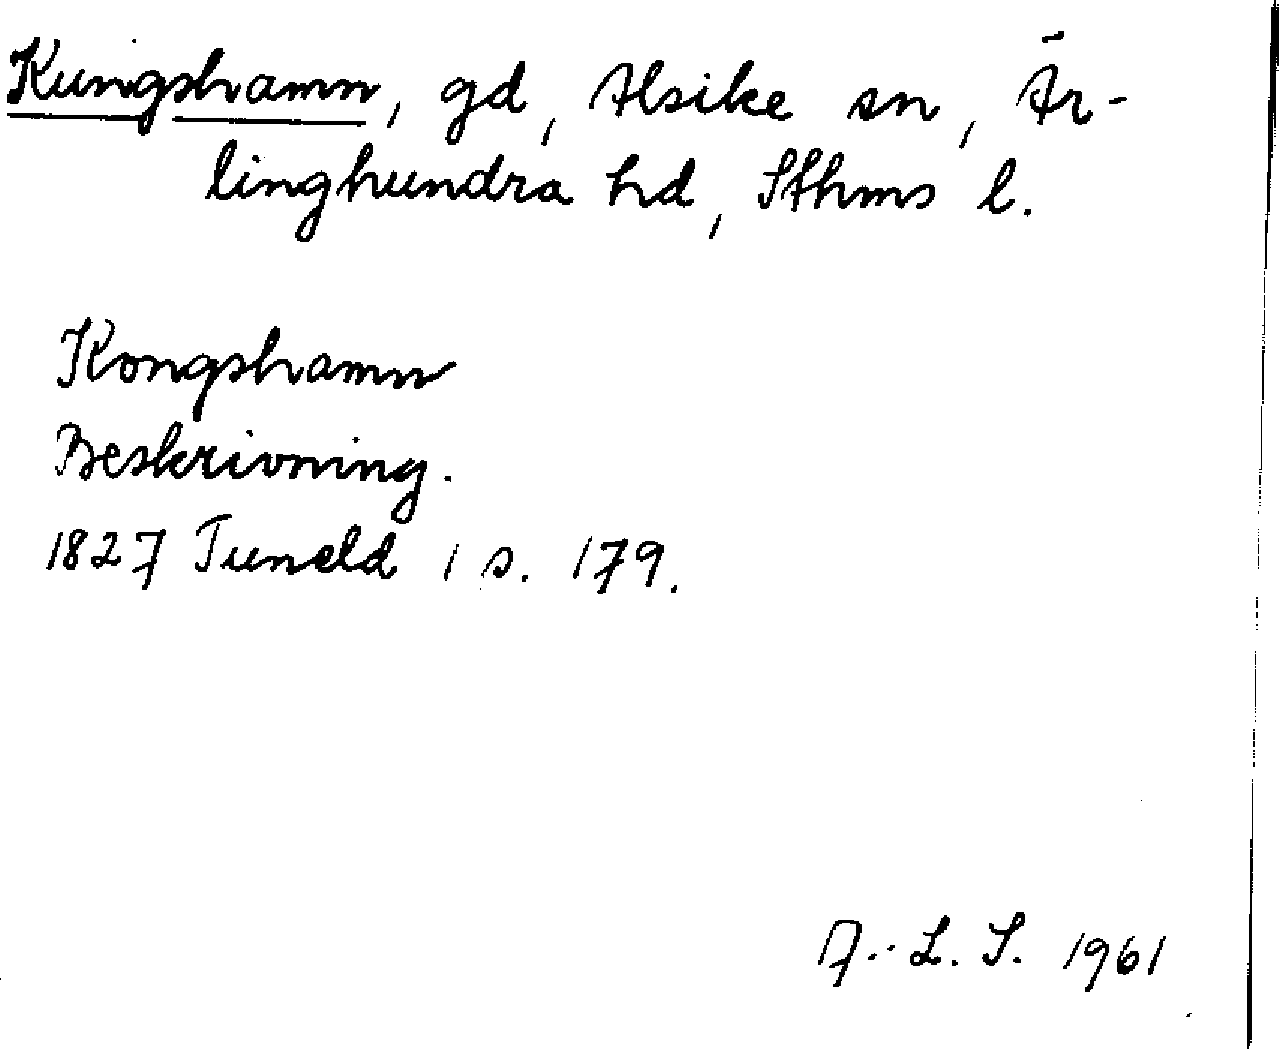 Kungshamn, gd, Alsike sn, Är-
linghundra hd, Sthms l.
Kongshamn
Beskrivning.
1827 Tuneld 1 s. 179.
A.-L. S. 1961